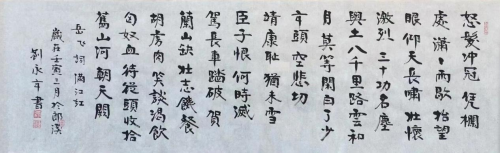 怒髮冲冠凭欄
處瀟瀟雨歇抬望
眼仰天長嘯壯懷
激烈三十功名塵
與土八千里路雲和
月莫等閑白了少
年頭空悲切
靖康耻猶未雪
臣子恨何時滅
駕長車踏破賀
蘭山缺壯志饑餐
胡虜肉笑談渴飲
匈奴血待從頭收拾
舊山河朝天闕
岳飞詞滿江红
歲在壬寅三月於郎溪
劉永年書